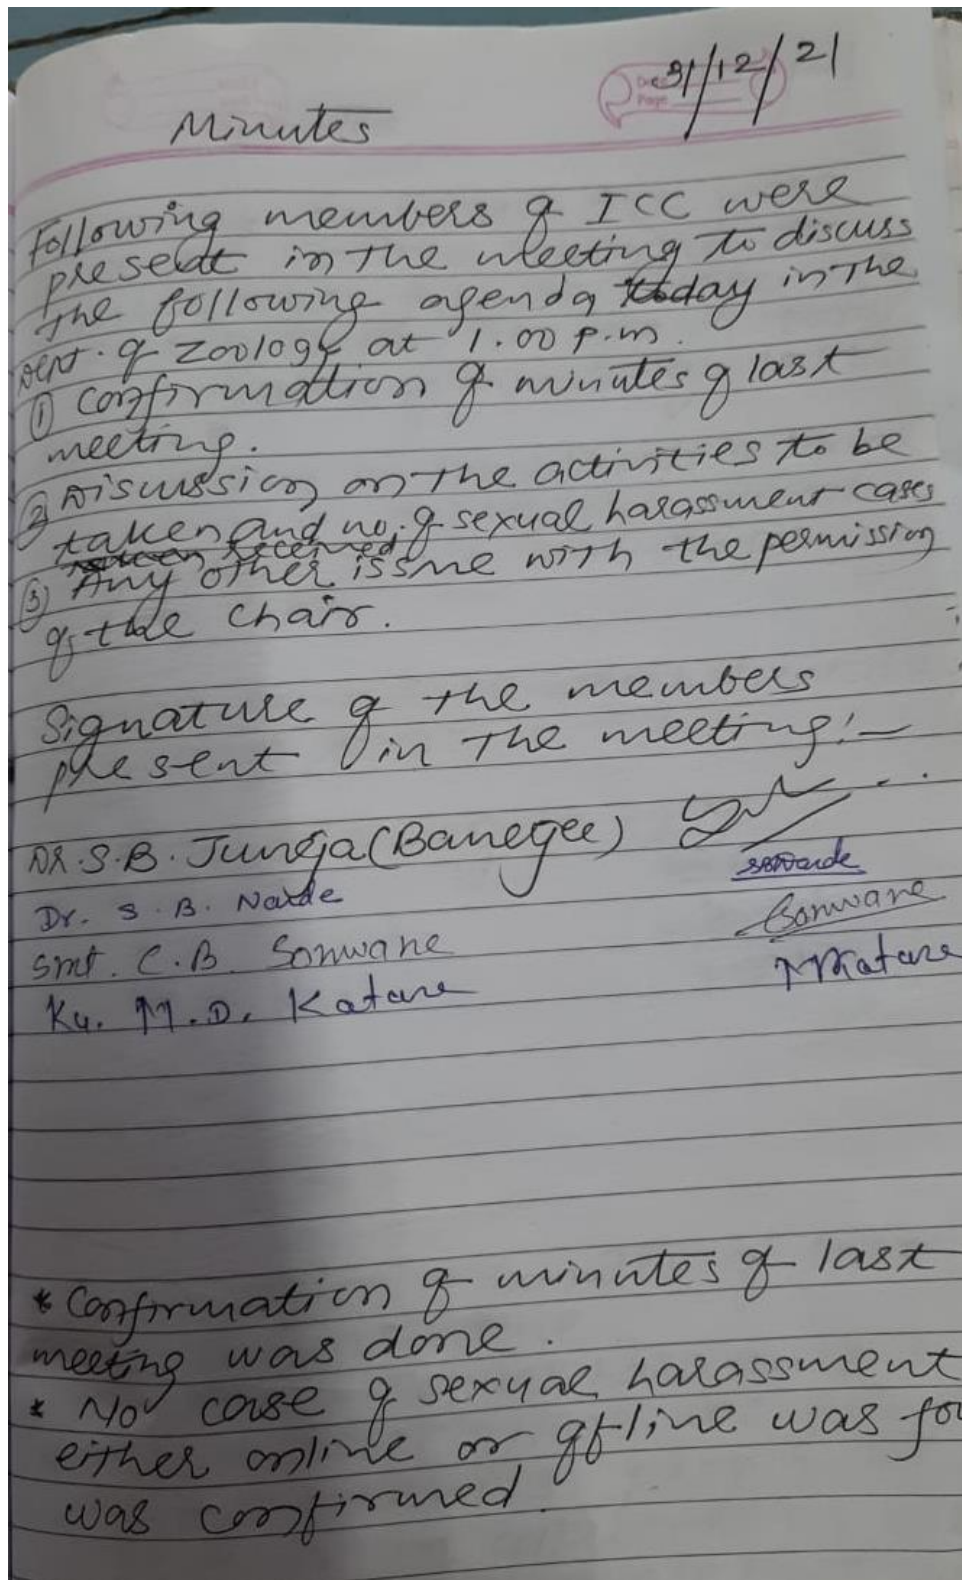 31/12/21
Minutes
Following members of ICC were
present in the meeting to discuss
the following agenda today in the
Dept. of Zoology at 1.00 p.m.
① Confirmation of minutes of last
meeting.
② Discussion on the activities to be
taken and no. of sexual harassment cases
received
③ Any other issue with the permission
of the chair.
Signature of the members
present in the meeting:-
DR. S.B. Juneja (Banerjee)
Dr. S. B. Narde SBNarde
Smt. C.B. Sonwane Sonwane
Ku. M.D. Katare MKatare
* Confirmation of minutes of last
meeting was done.
* No case of sexual harassment
either online or offline was fou
was confirmed.